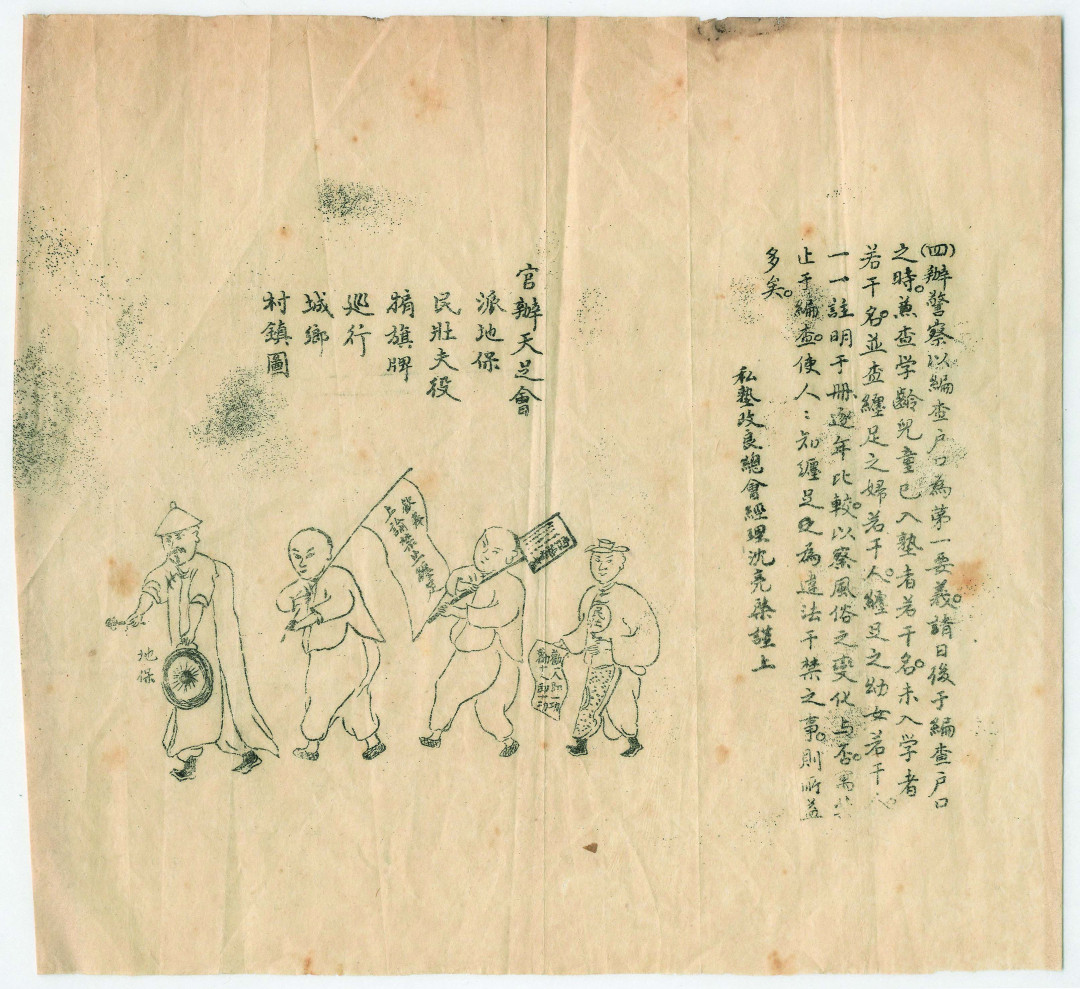 (四)辦警察以編查戶口為第一要義。請日後于編查戶口
之時。兼查学齡兒童已入塾者若干名。未入学者
若干名。並查纏足之婦若干人。纏足之幼女若干人。
一一註明于冊。逐年比較。以察風俗之變化与否。寓禁
止于編查。使人〻知纏足之為違法干禁之事。則所益
多矣。
私塾改良總會經理沈亮棨謹上
官辦天足會
派地保
民壯夫役
掮旗牌
巡行
城鄉
村鎮圖
上諭禁止纏足
勸一人即一功
勸十人即十功
地保